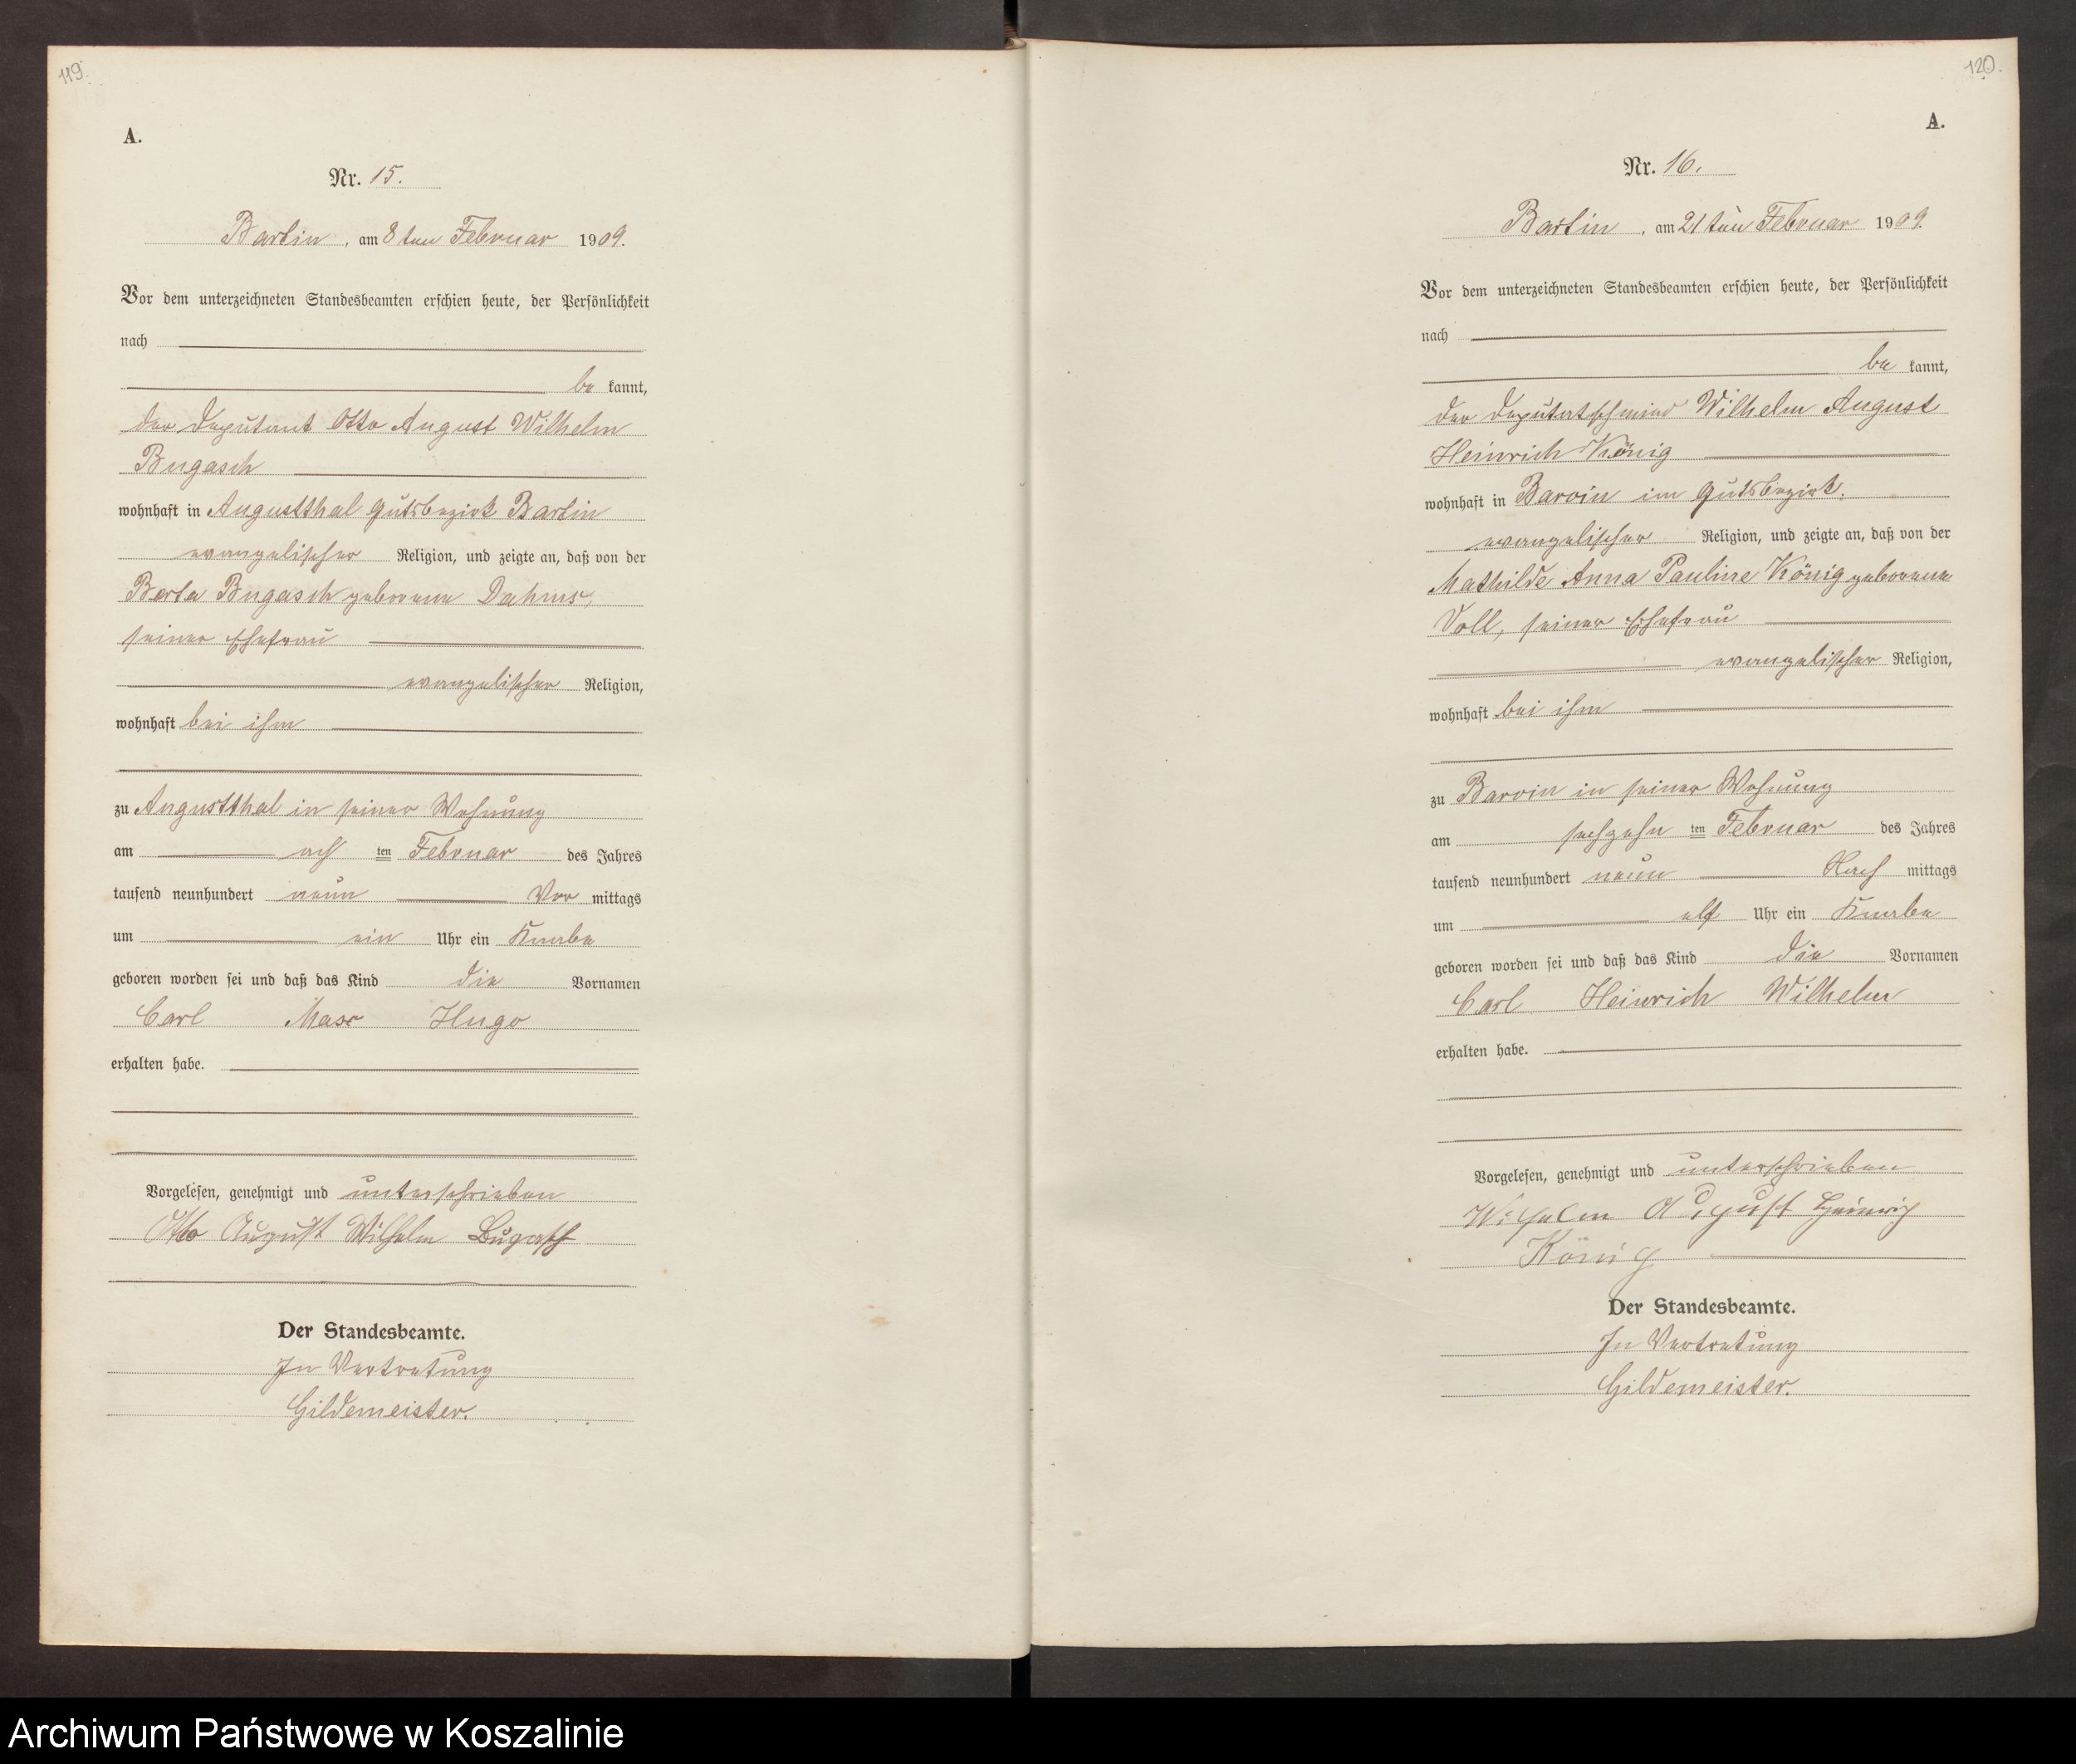 119.
A.
Nr. 15.
Bartin, am 8ten Februar 1909.
Vor dem unterzeichneten Standesbeamten erschien heute, der Persönlichkeit
nach
be kannt,
der Deputant Otto August Wilhelm
Bugasch
wohnhaft in Augustthal Gutsbezirk Bartin
evangelischer Religion, und zeigte an, daß von der
Berta Bugasch geborene Dahms,
seiner Ehefrau
evangelischer Religion,
wohnhaft bei ihm
zu Augustthal in seiner Wohnung
am ach ten Februar des Jahres
tausend neunhundert neun Vor mittags
um ein Uhr ein Knabe
geboren worden sei und daß das Kind die Vornamen
Carl Max Hugo
erhalten habe.
Vorgelesen, genehmigt und unterschrieben
Otto August Wilhelm Bugasch
Der Standesbeamte.
In Vertretung
Gildemeister.
120.
A.
Nr. 16.
Bartin, am 21ten Februar 1909.
Vor dem unterzeichneten Standesbeamten erschien heute, der Persönlichkeit
nach
be kannt,
der Deputatschmied Wilhelm August
Heinrich König
wohnhaft in Barvin im Gutsbezirk.
evangelischer Religion, und zeigte an, daß von der
Mathilde Anna Pauline König geborene
Voll, seiner Ehefrau
evangelischer Religion,
wohnhaft bei ihm
zu Barvin in seiner Wohnung
am sechzehn ten Februar des Jahres
tausend neunhundert neun Nach mittags
um elf Uhr ein Knabe
geboren worden sei und daß das Kind die Vornamen
Carl Heinrich Wilhelm
erhalten habe.
Vorgelesen, genehmigt und unterschrieben
Wilhelm August Heinrich
König
Der Standesbeamte.
In Vertretung
Gildemeister.
Archiwum Państwowe w Koszalinie